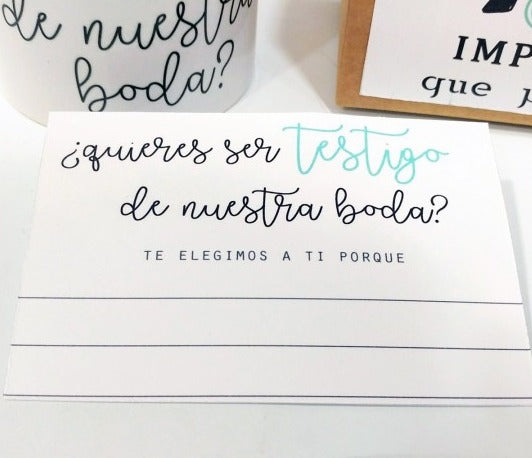 de nuestra
boda?
IMP
que p
¿quieres ser testigo
de nuestra boda?
TE ELEGIMOS A TI PORQUE